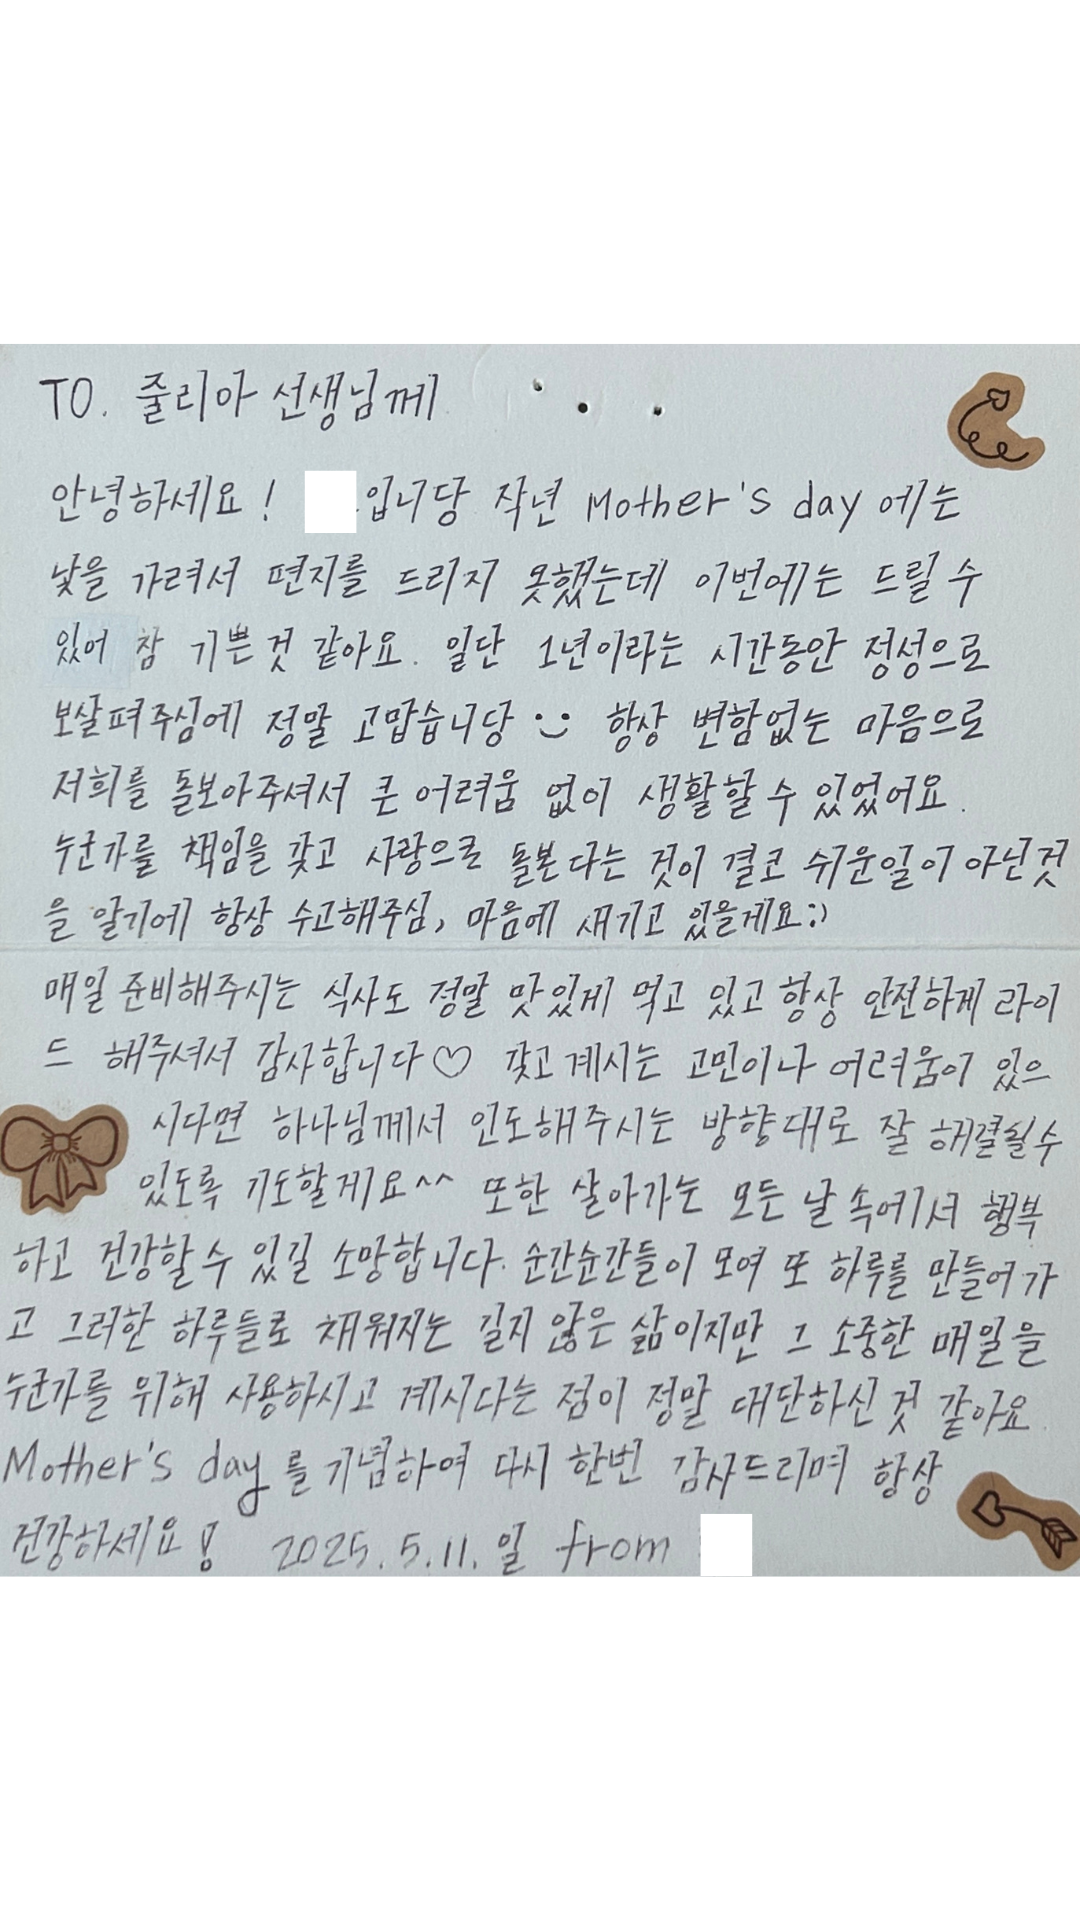 TO. 줄리아 선생님께
안녕하세요! 입니당 작년 Mother's day 에는
낯을 가려서 편지를 드리지 못했는데 이번에는 드릴 수
있어 참 기쁜 것 같아요. 일단 1년이라는 시간동안 정성으로
보살펴주심에 정말 고맙습니당 :) 항상 변함없는 마음으로
저희를 돌보아주셔서 큰 어려움 없이 생활할 수 있었어요.
누군가를 책임을 갖고 사랑으로 돌본다는 것이 결코 쉬운일이 아닌것
을 알기에 항상 수고해주심, 마음에 새기고 있을게요:)
매일 준비해주시는 식사도 정말 맛있게 먹고 있고 항상 안전하게 라이
드 해주셔서 감사합니다♡ 갖고 계시는 고민이나 어려움이 있으
시다면 하나님께서 인도해주시는 방향대로 잘 해결될 수
있도록 기도할게요^^ 또한 살아가는 모든 날 속에서 행복
하고 건강할 수 있길 소망합니다. 순간순간들이 모여 또 하루를 만들어가
고 그러한 하루들로 채워지는 길지 않은 삶이지만 그 소중한 매일을
누군가를 위해 사용하시고 계시다는 점이 정말 대단하신 것 같아요.
Mother's day 를 기념하여 다시 한번 감사드리며 항상
건강하세요! 2025. 5. 11. 일 from